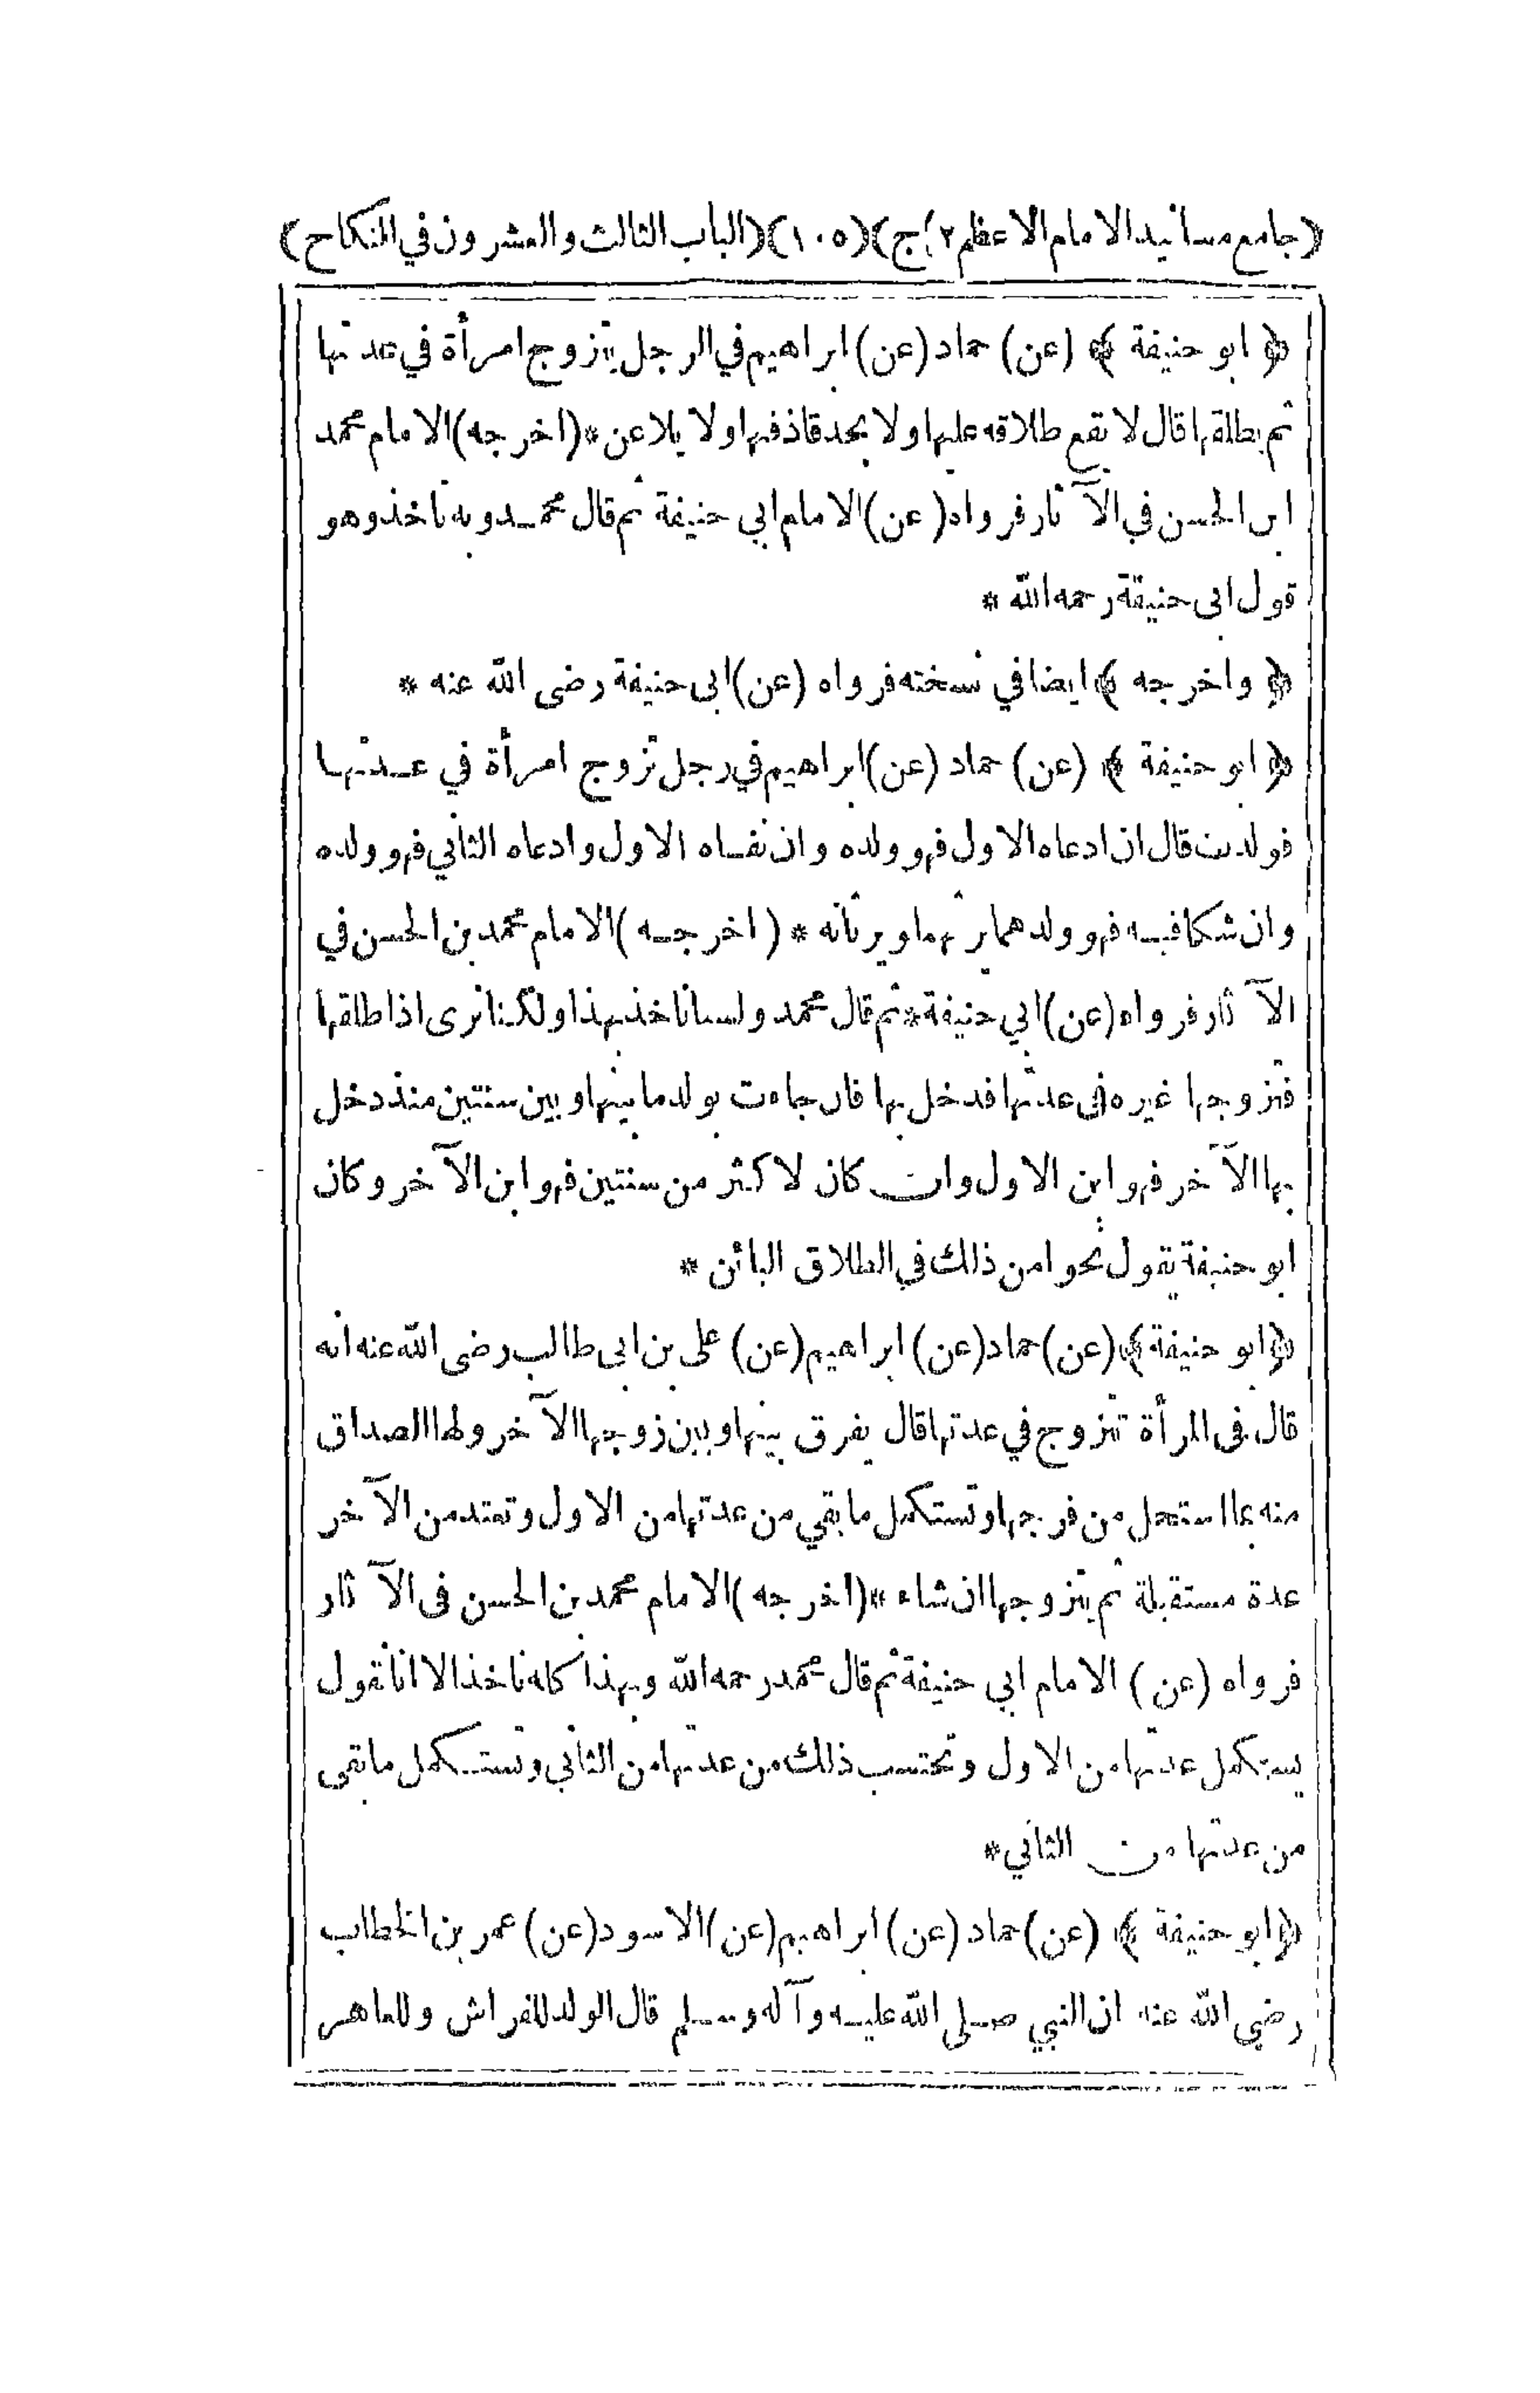 (جامع مسانيد الامام الاعظم ٢ ج)(١٠٥)(الباب الثالث والعشرون في النكاح)
﴿ ابو حنيفة ﴾ (عن) حماد (عن) ابراهيم في الرجل يتزوج امرأة في عدتها
ثم يطلقها قال لا يقع طلاقه عليها ولا يحد قاذفها ولا يلاعن * (اخرجه) الامام محمد
ابن الحسن في الآثار فرواه (عن) الامام ابي حنيفة ثم قال محمد وبه ناخذ وهو
قول ابى حنيفة رحمه الله *
﴿ واخرجه ﴾ ايضا في نسخته فرواه (عن) ابى حنيفة رضى الله عنه *
﴿ ابو حنيفة ﴾ (عن) حماد (عن) ابراهيم في رجل تزوج امرأة في عدتها
فولدت قال ان ادعاه الاول فهو ولده وان نفاه الاول وادعاه الثاني فهو ولده
وان شكا فيه فهو ولدهما يرثهما ويرثانه * (اخرجه) الامام محمد بن الحسن في
الآثار فرواه (عن) ابي حنيفة * ثم قال محمد ولسنا ناخذ بهذا ولكنا نرى اذا طلقها
فتزوجها غيره فى عدتها فدخل بها فان جاءت بولد ما بينها وبين سنتين منذ دخل
بها الآخر فهو ابن الاول وان كان لاكثر من سنتين فهو ابن الآخر وكان
ابو حنيفة يقول نحوا من ذلك في الطلاق البائن *
﴿ ابو حنيفة ﴾ (عن) حماد (عن) ابراهيم (عن) على بن ابى طالب رضى الله عنه انه
قال فى المرأة تتزوج في عدتها قال يفرق بينها وبين زوجها الآخر ولها الصداق
منه بما استحل من فرجها وتستكمل ما بقي من عدتها من الاول وتعتد من الآخر
عدة مستقبلة ثم يتزوجها ان شاء * (اخرجه) الامام محمد بن الحسن فى الآثار
فرواه (عن) الامام ابي حنيفة ثم قال محمد رحمه الله وبهذا كله ناخذ الا انا نقول
يستكمل عدتها من الاول وتحتسب ذلك من عدتها من الثاني وتستكمل ما بقى
من عدتها من الثاني *
﴿ ابو حنيفة ﴾ (عن) حماد (عن) ابراهيم (عن) الاسود (عن) عمر بن الخطاب
رضى الله عنه ان النبي صلى الله عليه وآله وسلم قال الولد للفراش وللعاهر